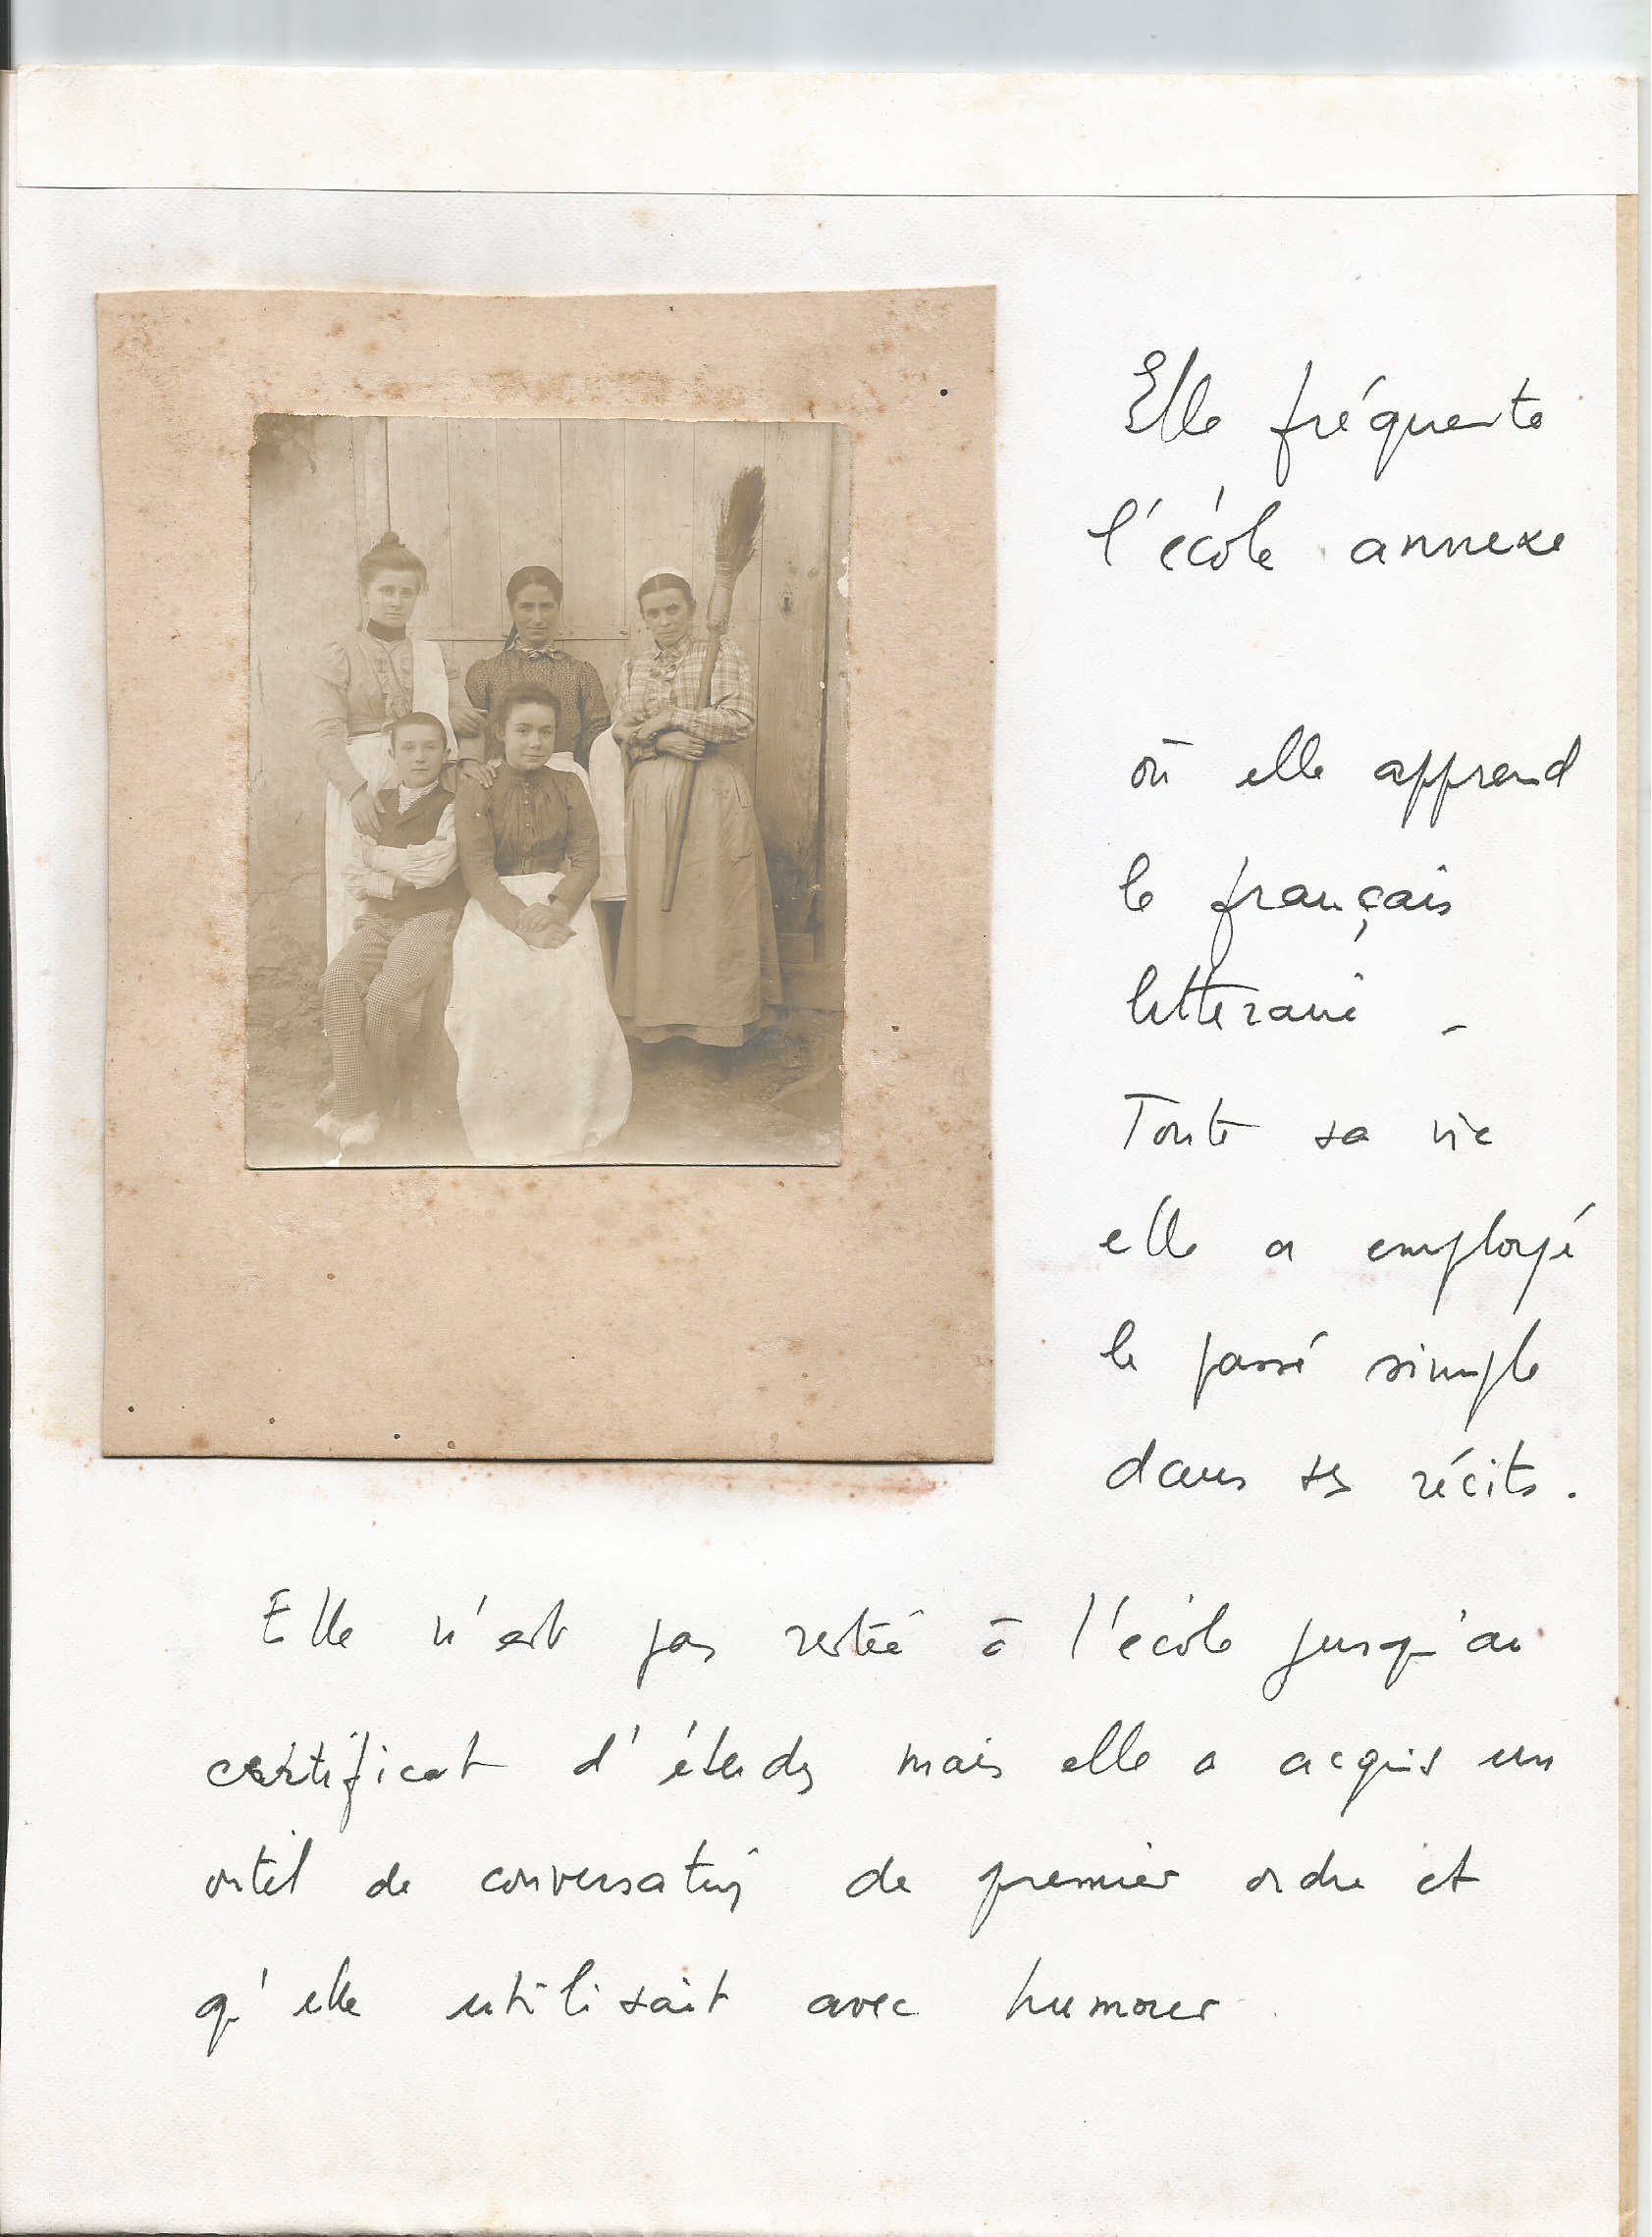 Elle fréquente
l'école annexe
où elle apprend
le français
littéraire -
Toute sa vie
elle a employé
le passé simple
dans ses récits.
Elle n'est pas restée à l'école jusqu'au
certificat d'études mais elle a acquis un
outil de conversation de premier ordre et
qu'elle utilisait avec humour